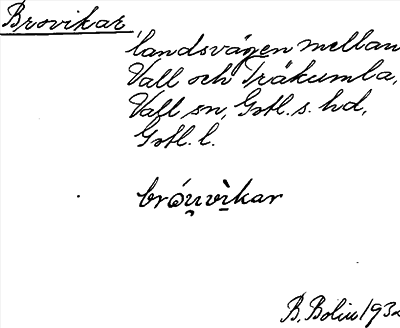 Brovikar,
landsvägen mellan
Vall och Träkumla,
Vall sn, Gotl. s. hd,
Gotl. l.
bróu̯vìkar
B. Bolin 1932